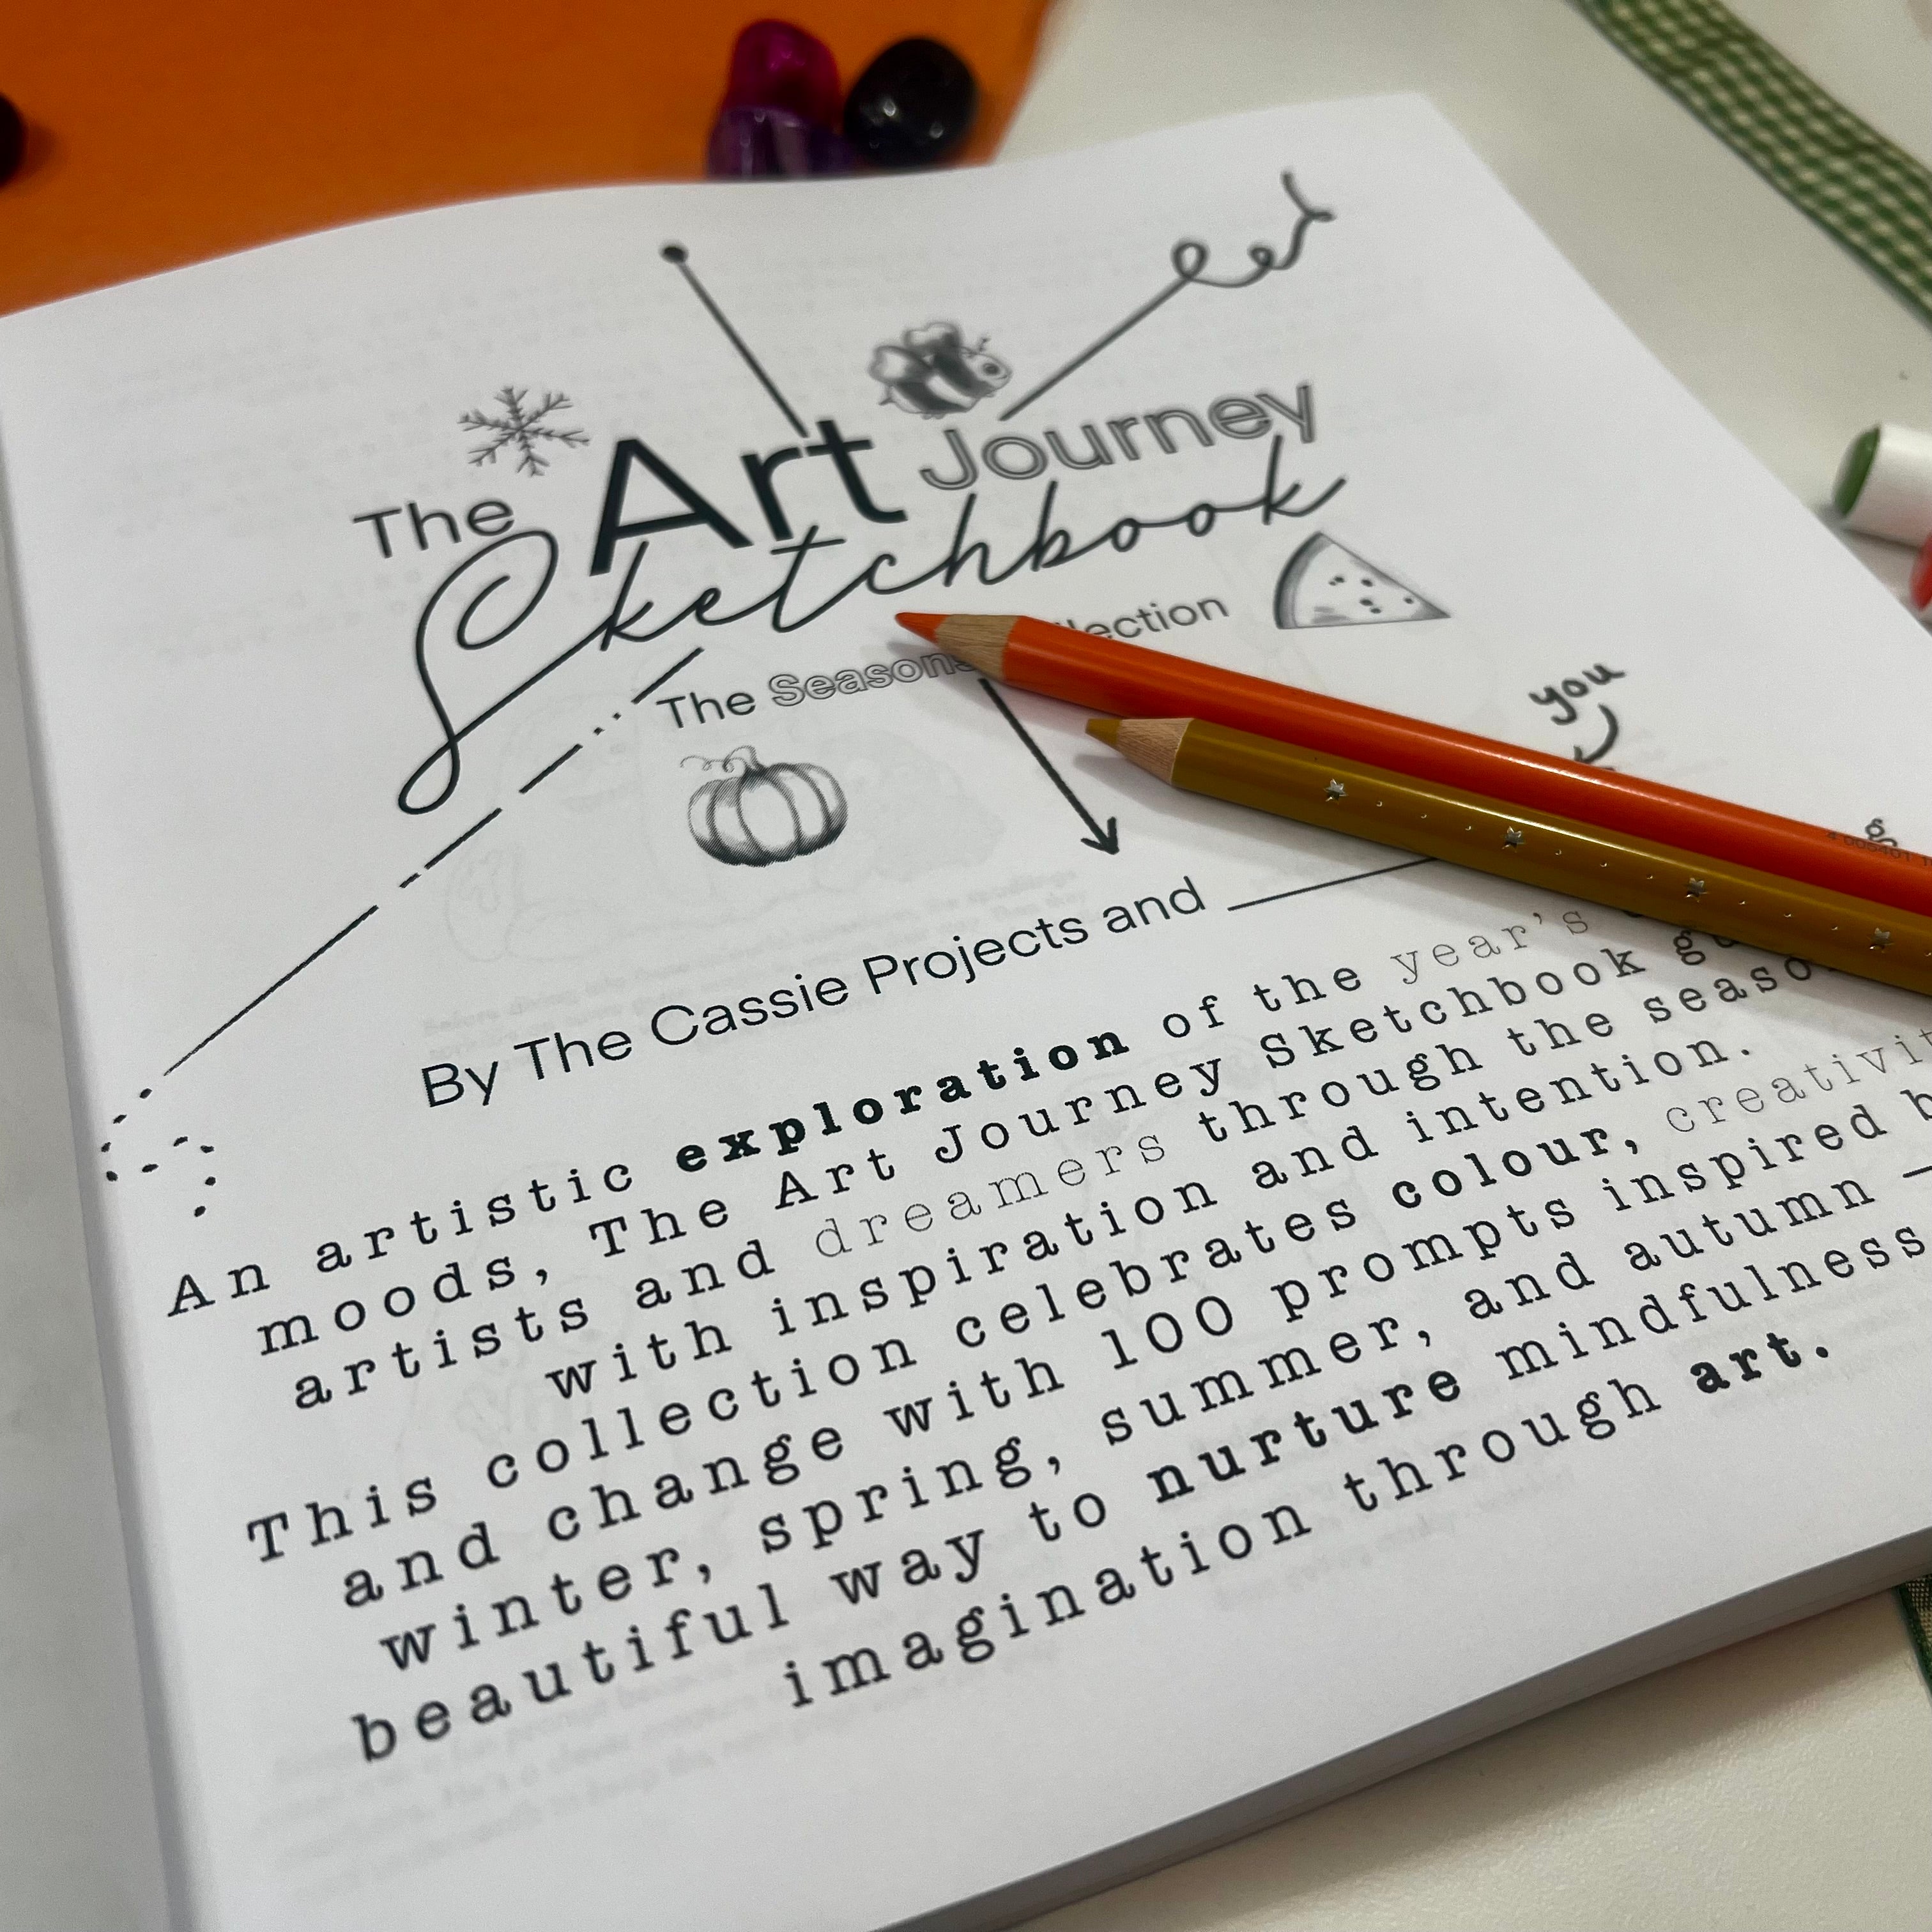 The Art Journey
Sketchbook
The Seasons
you
By The Cassie Projects and
An artistic exploration of the year's
moods, The Art Journey Sketchbook
artists and dreamers through the
with inspiration and intention.
This collection celebrates colour,
and change with 100 prompts inspired
winter, spring, summer, and autumn —
beautiful way to nurture mindfulness
imagination through art.